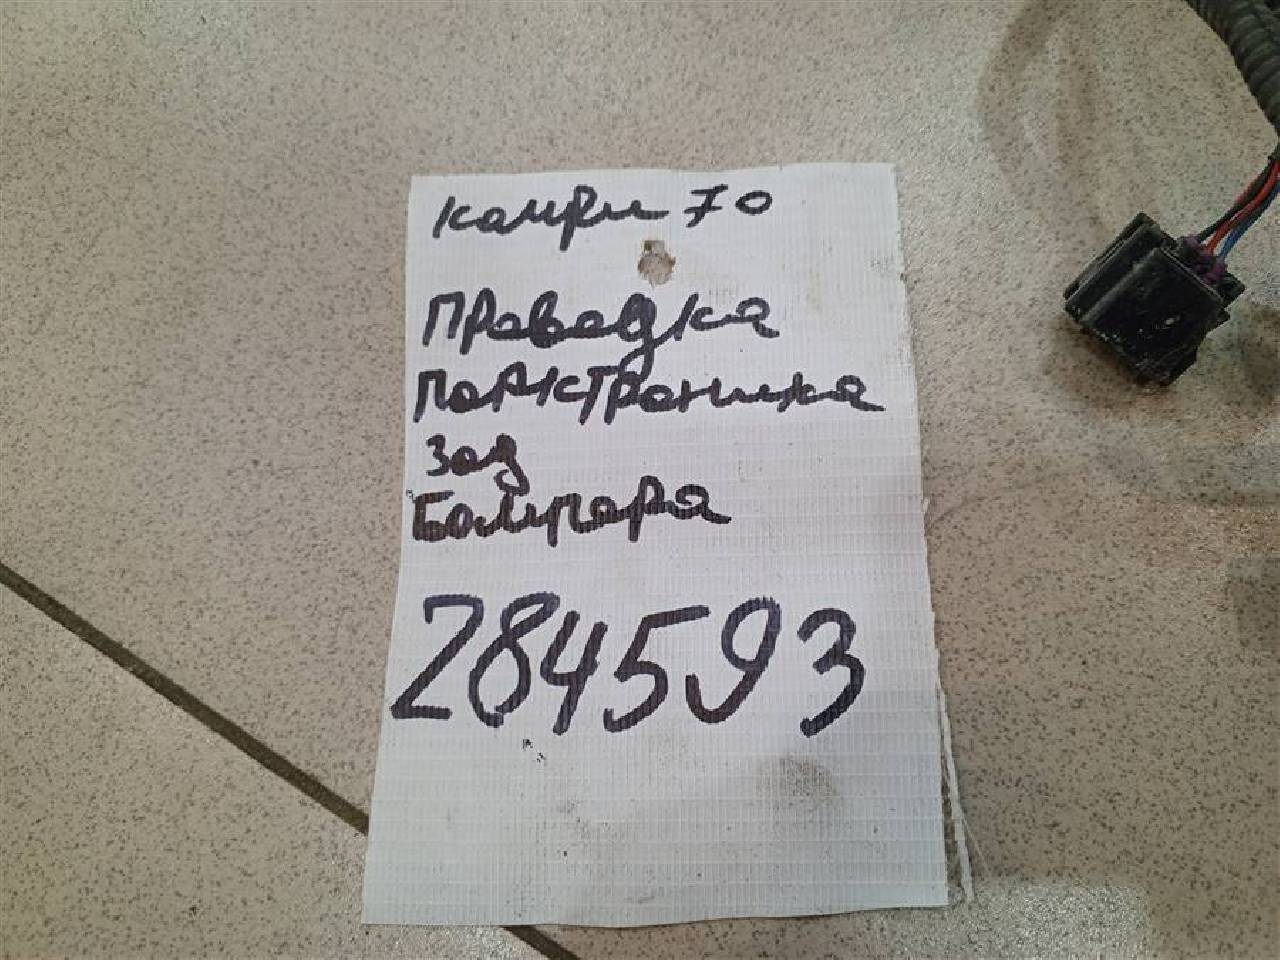 камри 70
Проводка
парктроника
зад
бампара
284593